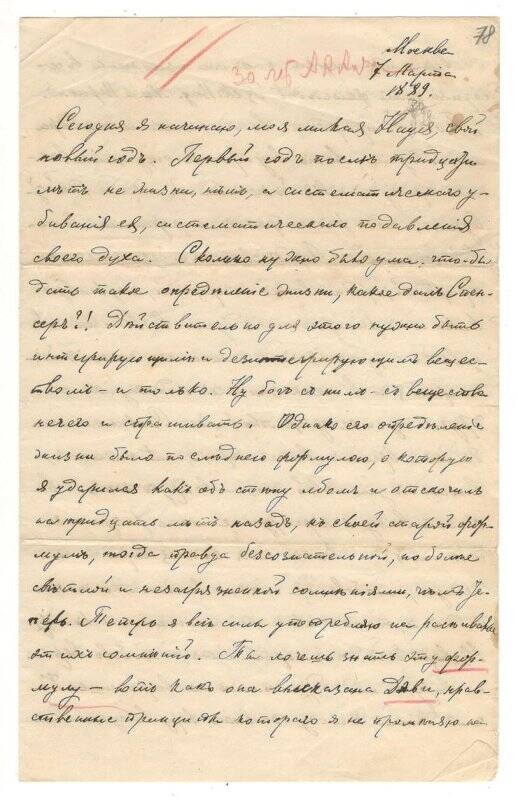 78
Москва
7 Марта
1889.
Сегодня я начинаю, моя милая Надя, свой
новый годъ. Первый годъ послѣ тридцати
лѣтъ не жизни, нѣтъ, а систематическаго у-
биванія ея, систематическаго подавленія
своего духа. Сколько нужно было ума, что-бы
дать такое опредѣленіе жизни, какое далъ Спен-
серъ?! Дѣйствительно для этого нужно быть
интегрирующимъ и дезинтегрирующимъ вещес-
твомъ – и только. Ну богъ съ нимъ – съ вещества
нечего и спрашивать. Однако его опредѣленіе
жизни было послѣднею формулою, о которую
я ударился какъ объ стѣну лбомъ и отскочилъ
на тридцать лѣтъ назадъ, къ своей старой фор-
мулѣ, тогда правда безсознательной, но болѣе
свѣтлой и незагрязненной сомнѣніями, чѣмъ те-
перь. Теперь я всѣ силы употребляю на
этихъ сомнѣній. Ты хочешь знать эту фор-
мулу – вотъ какъ она высказана Дэви, нрав-
ственные принципы котораго я не промѣняю на